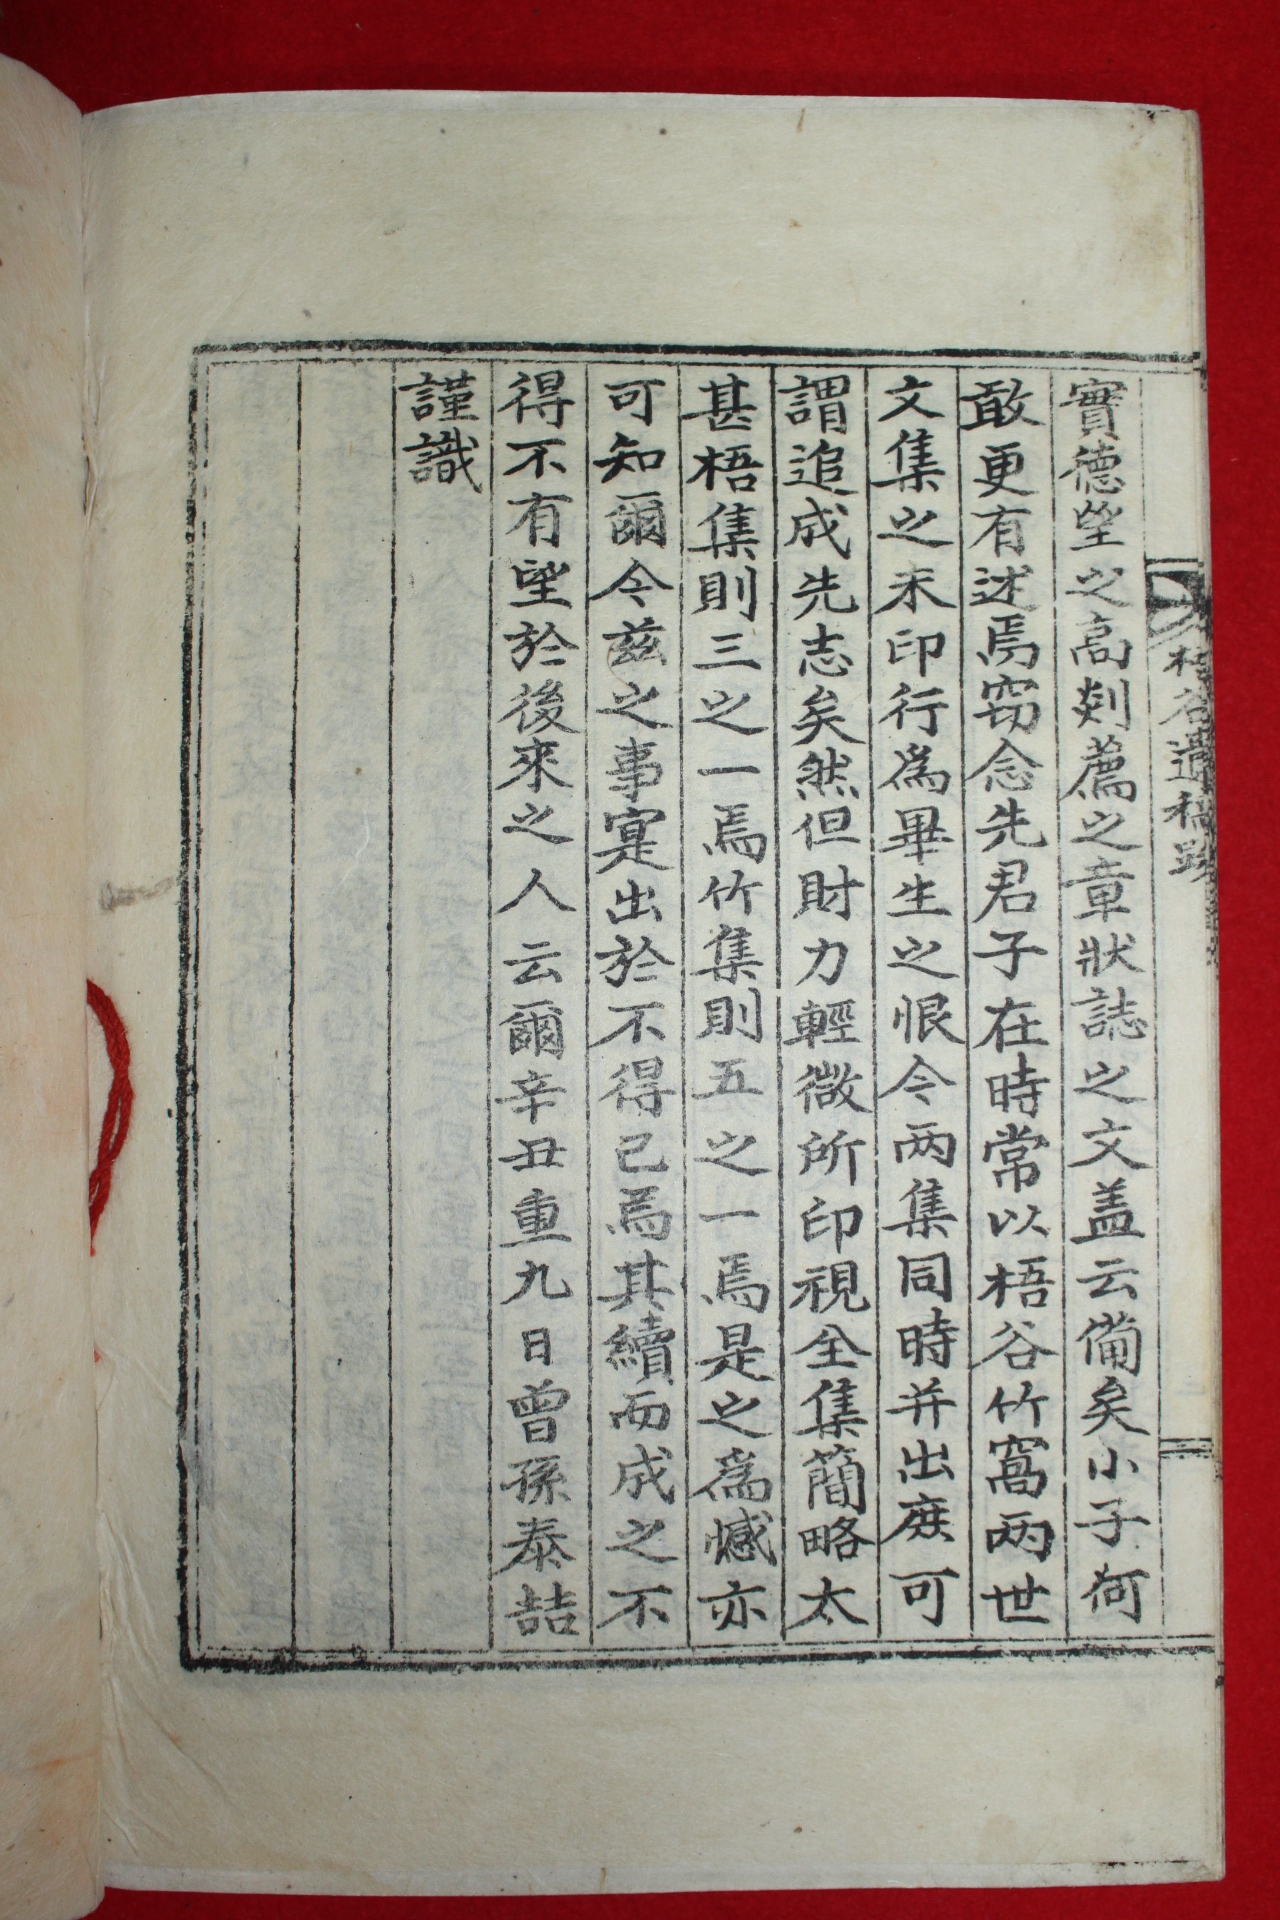 梧谷遺稿跋
實德望之高剡薦之章狀誌之文盖云備矣小子何
敢更有述焉窃念先君子在時常以梧谷竹窩两世
文集之未印行爲畢生之恨今两集同時并出庶可
謂追成先志矣然但財力輕微所印視全集簡略太
甚梧集則三之一焉竹集則五之一焉是之爲憾亦
可知爾今兹之事寔出於不得已焉其續而成之不
得不有望於後來之人云爾辛丑重九日曾孫泰喆
謹識